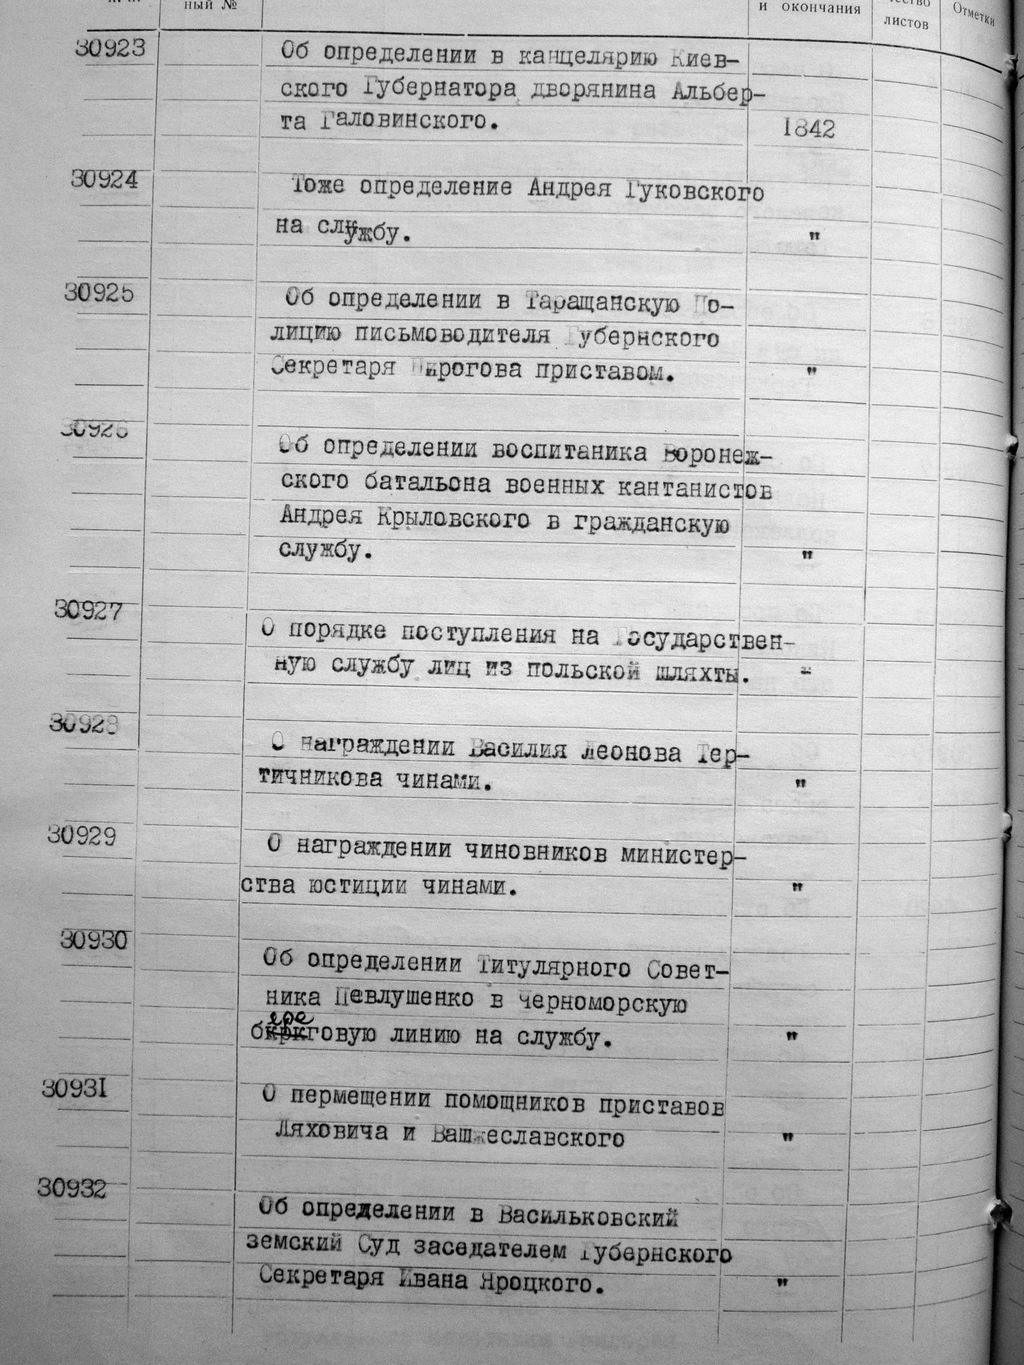 ный №
и окончания
листов
Отметки
30923
Об определении в канцелярию Киев-
ского Губернатора дворянина Альбер-
та Галовинского.
1842
30924
Тоже определение Андрея Гуковского
на службу.
"
30925
Об определении в Таращанскую По-
лицию письмоводителя Губернского
Секретаря Пирогова приставом.
"
30926
Об определении воспитаника Воронеж-
ского батальона военных кантанистов
Андрея Крыловского в гражданскую
службу.
"
30927
О порядке поступления на Государствен-
ную службу лиц из польской шляхты.
"
30928
О награждении Василия Леонова Тер-
тичникова чинами.
"
30929
О награждении чиновников министер-
ства юстиции чинами.
"
30930
Об определении Титулярного Совет-
ника Певлушенко в Черноморскую
береговую линию на службу.
"
30931
О пермещении помощников приставов
Ляховича и
"
30932
Об определении в Васильковский
земский Суд заседателем Губернского
Секретаря Ивана Яроцкого.
"